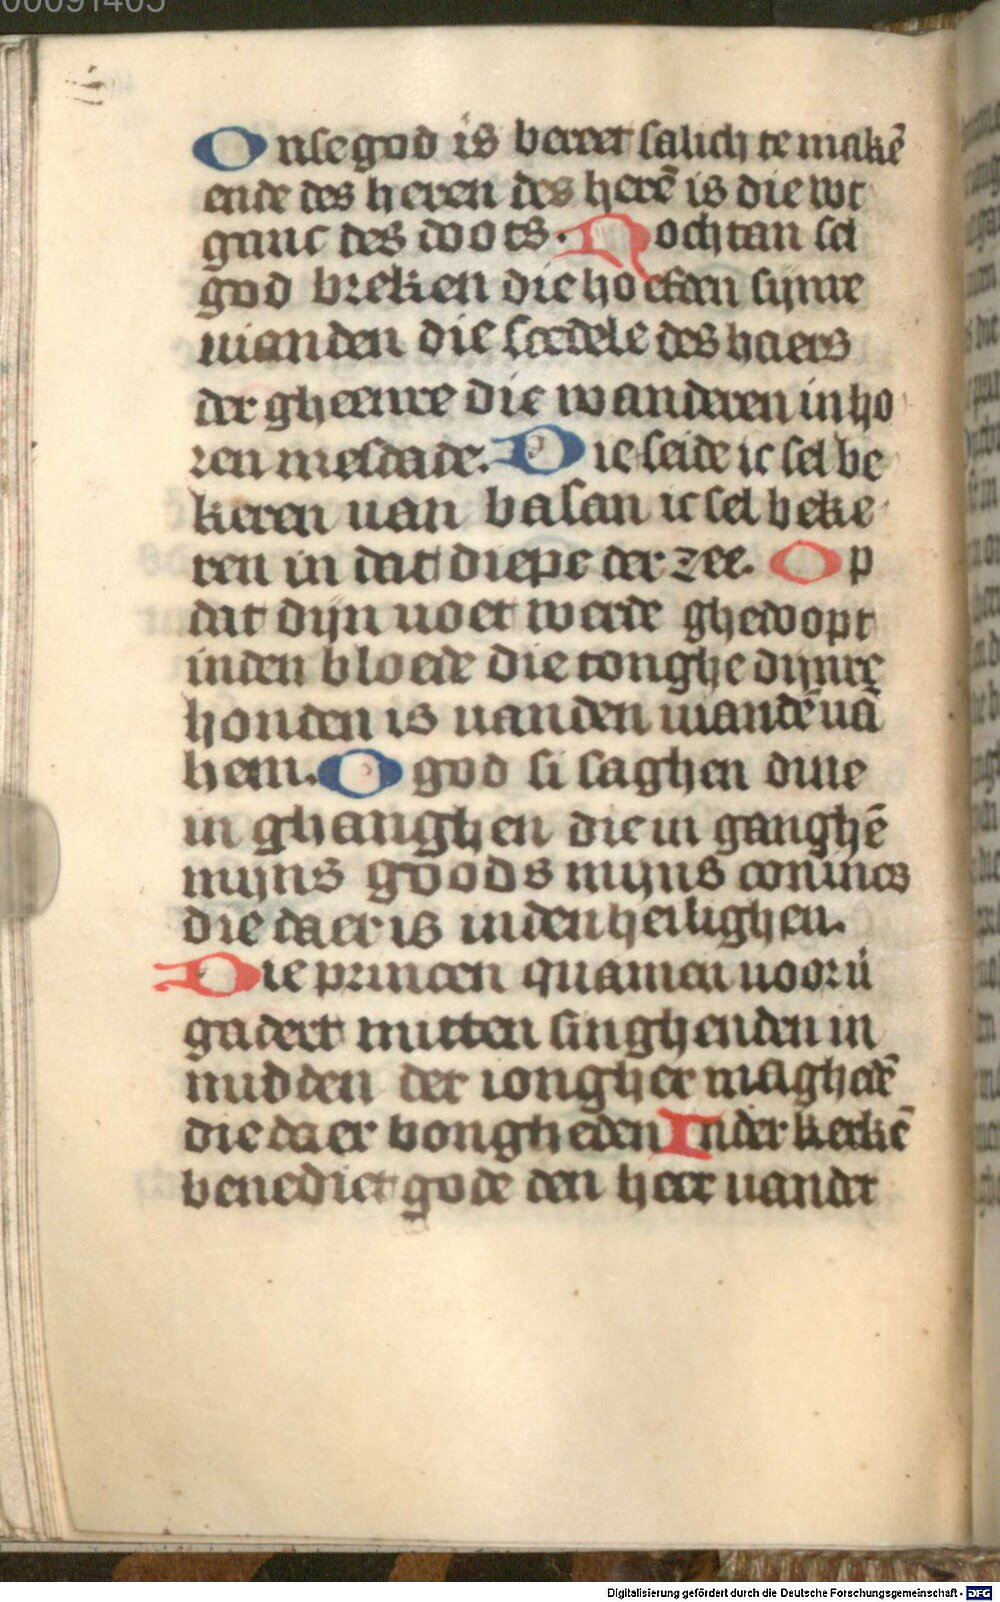 00091405
Onse god is bereet salich te makē
ende des heren des herē is die wt
ganc des doots. Nochtan sel
god breken die hoefden sijnre
uianden die scedele des haers
der gheenre die wanderen in ho
ren mesdade. Die seide ic sel be
keren uan basan ic sel beke
ren in dat diepe der zee. Op
dat dijn uoet werde ghedopt
inden bloede die tonghe dijnre
honden is uanden uiandē uā
hem. O god si saghen dine
in ghanghen die in ganghē
mijns goods mijns conincs
die daer is inden heilighen.
Die princen quamen uoor ū
gadert mitten singhenden in
midden der iongher maghdē
die daer bongheden In der kerkē
benedict gode den heer uander
Digitalisierung gefördert durch die Deutsche Forschungsgemeinschaft - DFG